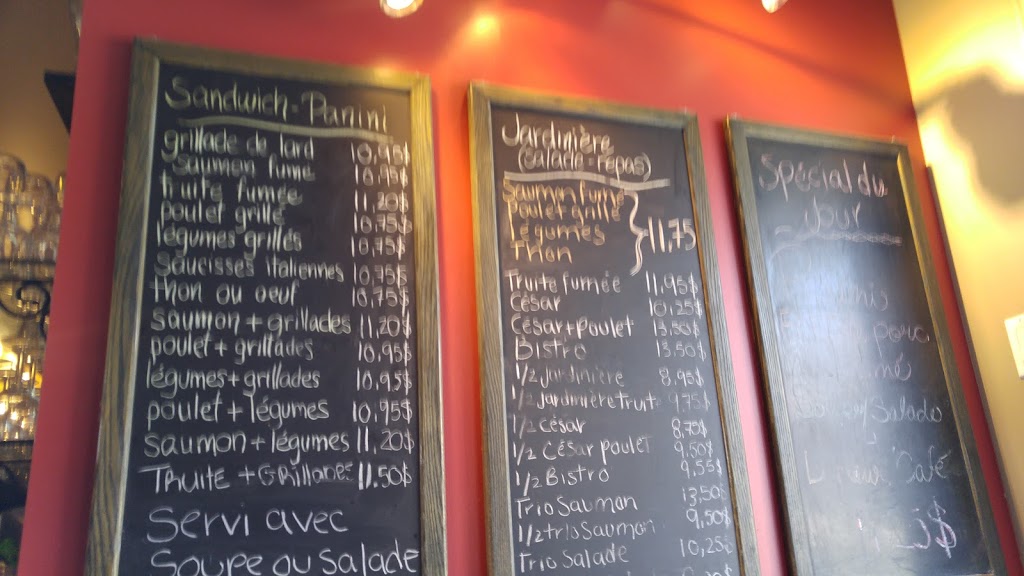 Sandwich-Panini
grillade de lard 10.95$
saumon fumé 10.75$
truite fumée 11.20$
poulet grillé 10.75$
légumes grillés 10.75$
saucisses italiennes 10.75$
thon ou oeuf 10.75$
saumon + grillades 11.20$
poulet + grillades 10.95$
légumes + grillades 10.95$
poulet + légumes 10.95$
saumon + légumes 11.20$
Truite + Grillades 11.50$
Servi avec
Soupe ou Salade
Jardinière
(salade-repas)
Saumon fumé
Poulet grillé
Légumes
Thon
11,75
Truite fumée 11,95$
César 10,25$
César + poulet 13,50$
Bistro 13,50$
1/2 Jardinière 8,95$
1/2 Jardinière Truite 9,75$
1/2 César 8,75$
1/2 César poulet 9,50$
1/2 Bistro 9,55$
Trio Saumon 13,50$
1/2 trio Saumon 9,50$
Trio Salade 10,25$
Spécial du
Jour
Salade
Café
$